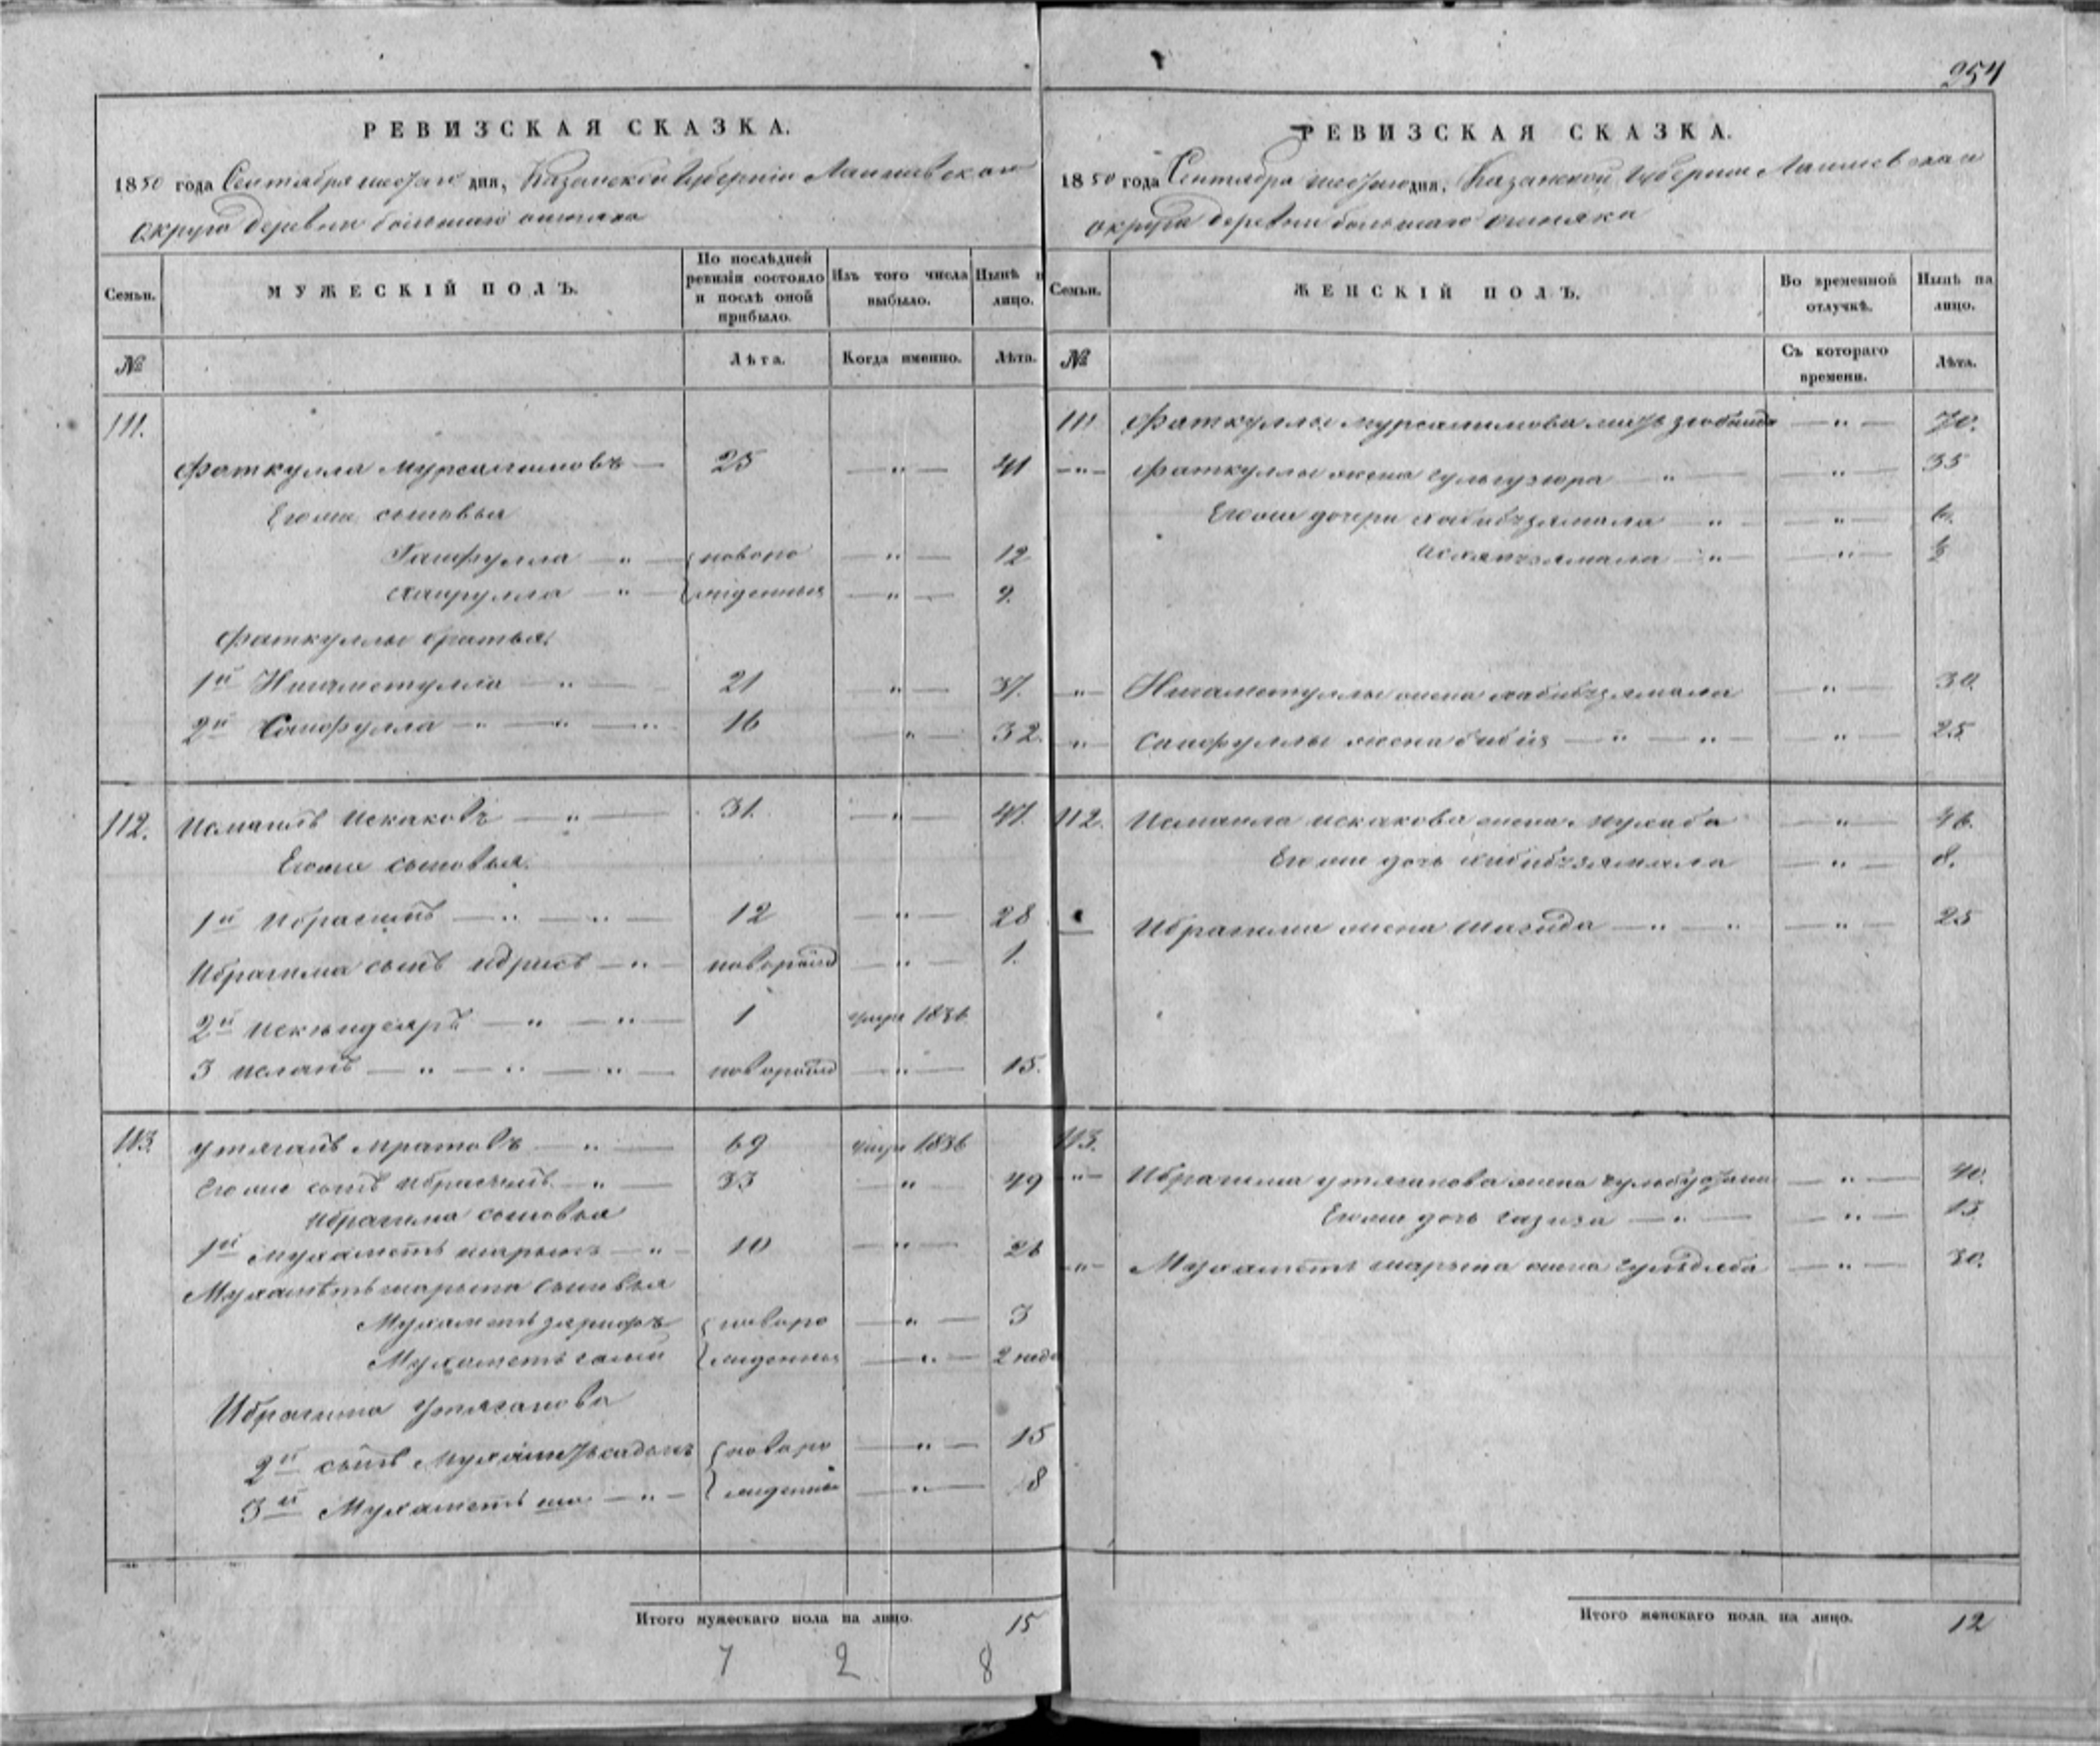 254
РЕВИЗСКАЯ СКАЗКА.
1850 года Сентября шестаго дня, Казанской Губерніи Лаишевской
округи деревни большаго ошняка
Семьи.
МУЖЕСКІЙ ПОЛЪ.
По послѣдней ревизіи состояло и послѣ оной прибыло.
Изъ того числа выбыло.
Нынѣ н лицо.
№
Лѣта.
Когда именно.
Лѣта.
111.
Фаткулла Мурсалимовъ — 25 — „ — 41
Его же сыновья
Гайфулла — „ — новоро — „ — 12
Хайрулла — „ — жденныя — „ — 9.
Фаткуллы братья
1й Нигаметулла — „ — 21 „ — 37.
2й Сайфулла — „ — „ — „ 16 — „ — 32.
112. Исмаилъ Искаковъ — „ — 31. — „ — 47.
Его же сыновья.
1й Ибрагимъ — „ — „ — 12 — „ — 28
Ибрагима сынъ идрисъ — „ — новорожд — „ — 1.
2й Искындеяръ — „ — „ — 1 умре 1836
3 Исланъ — „ — „ — „ — новорожд — „ — 15.
113. Утяганъ Мратовъ — „ — 69 умре 1836
Его же сынъ Ибрагимъ — „ — 33 — „ — 49
Ибрагима сыновья
1й Мухаметъ шарыпъ — „ — 10 — „ — 26
Мухаметь шарыпа сыновья
Мухаметь зарифъ новоро — „ — 3
Мухаметь жденныя — „ — 2 неде
Ибрагима Утяганова
2й сынъ Мухаметь садыкъ новоро — „ — 15
3й Мухаметъ ша — „ — жденныя — „ — 8
Итого мужескаго пола на лицо. 15
7 2 8
РЕВИЗСКАЯ СКАЗКА.
1850 года Сентября шестаго дня, Казанской Губерніи Лаишевской
округи деревни большаго ошняка
Семьи.
ЖЕНСКІЙ ПОЛЪ.
Во временной отлучкѣ.
Нынѣ на лицо.
№
Съ котораго времени.
Лѣта.
111 Фаткуллы Мурсалимова мать — „ — 70.
— „ — Фаткуллы жена гульгузюра — „ — „ — 35
Его же дочери хабибзямала — „ — „ — 6.
— „ — „ — ½
„ — Нигаметуллы жена хабибзямала — „ — 30.
„ — Сайфуллы жена бибія — „ — „ — „ — 25
112. Исмаила искакова жена — „ — 46.
Его же дочь хабибзямала — „ — 8.
Ибрагима жена шагида — „ — „ — „ — 25
113.
„ — Ибрагима утяганова жена — „ — 40.
Его же дочь газиза — „ — „ — 13
— „ — Мухаметь шарыпа жена — „ — 30.
Итого женскаго пола на лицо. 12